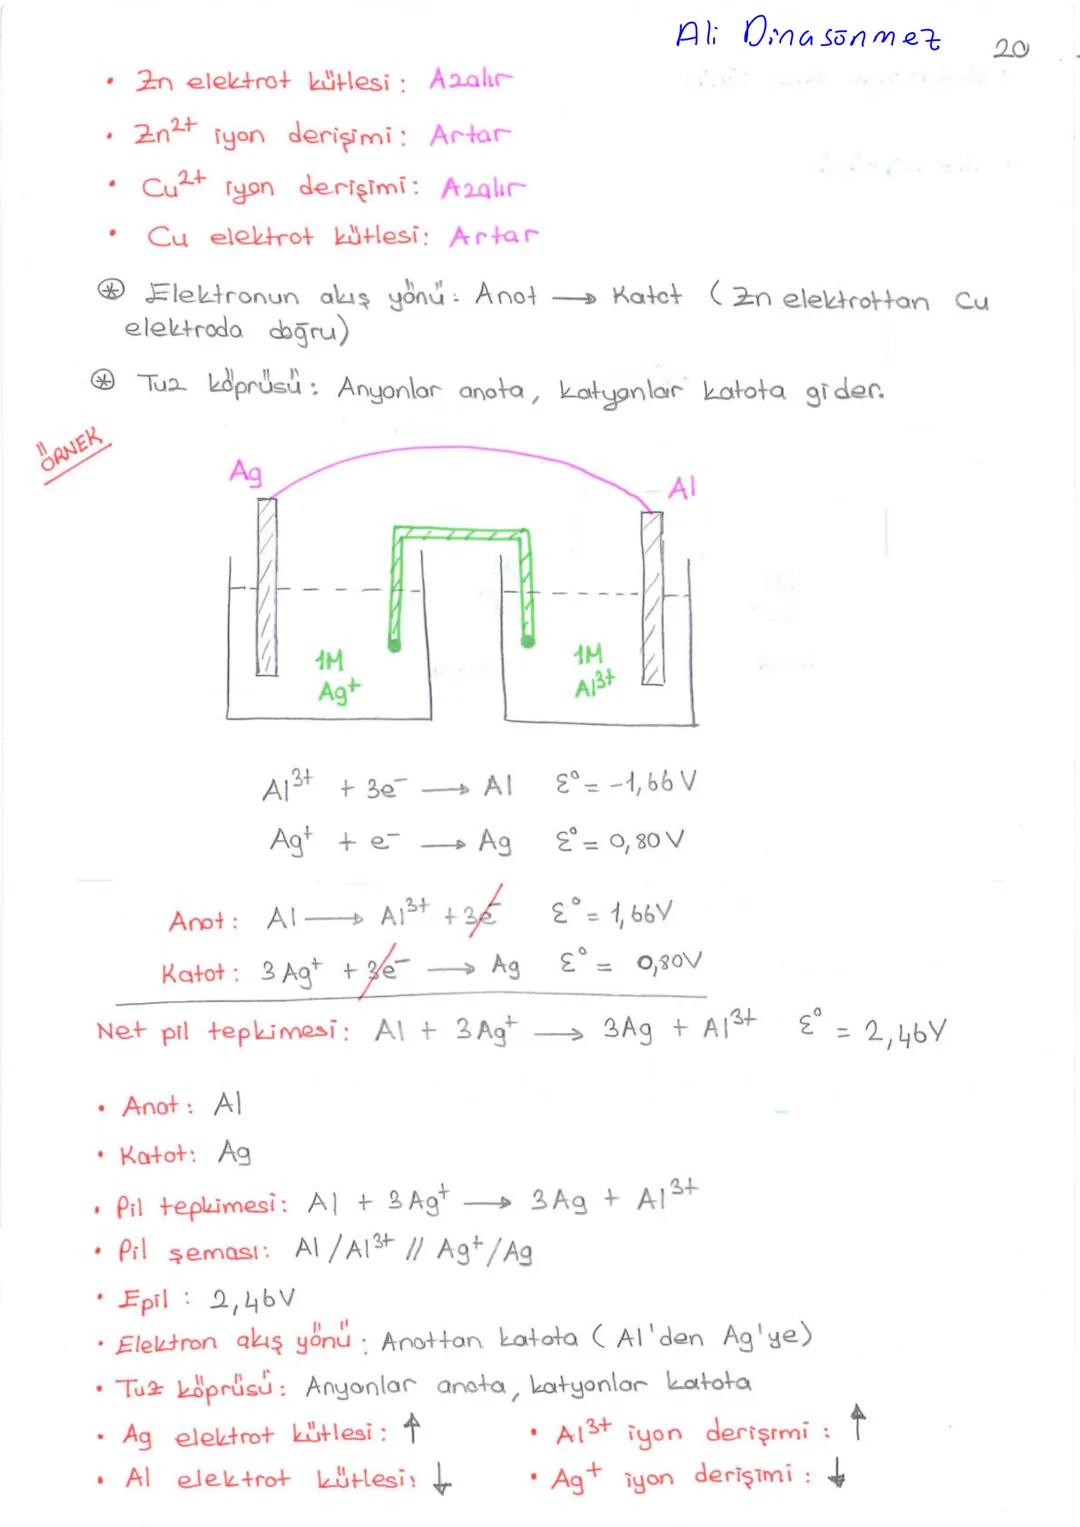 Ali Dinasönmez 20
• Zn elektrot kütlesi: Azalır
• Zn2+ iyon derişimi: Artar
• Cu2+ iyon derişimi: Azalır
• Cu elektrot kütlesi: Artar
⊛ Elektronun akış yönü: Anot → Katot (Zn elektrottan Cu
elektroda doğru)
⊛ Tuz köprüsü: Anyonlar anota, katyonlar katota gider.
ÖRNEK
Ag
Al
1M
Ag+
1M
Al3+
Al3+ + 3e- → Al ε° = -1,66 V
Ag+ + e- → Ag ε° = 0,80 V
Anot: Al → Al3+ + 3e- ε° = 1,66V
Katot: 3Ag+ + 3e- → Ag ε° = 0,80V
Net pil tepkimesi: Al + 3Ag+ → 3Ag + Al3+ ε° = 2,46V
• Anot: Al
• Katot: Ag
• Pil tepkimesi: Al + 3Ag+ → 3Ag + Al3+
• Pil şeması: Al/Al3+ // Ag+/Ag
• Epil: 2,46V
• Elektron akış yönü: Anottan katota (Al'den Ag'ye)
• Tuz köprüsü: Anyonlar anota, katyonlar katota
• Ag elektrot kütlesi: ↑ • Al3+ iyon derişimi: ↑
• Al elektrot kütlesi: ↓ • Ag+ iyon derişimi: ↓